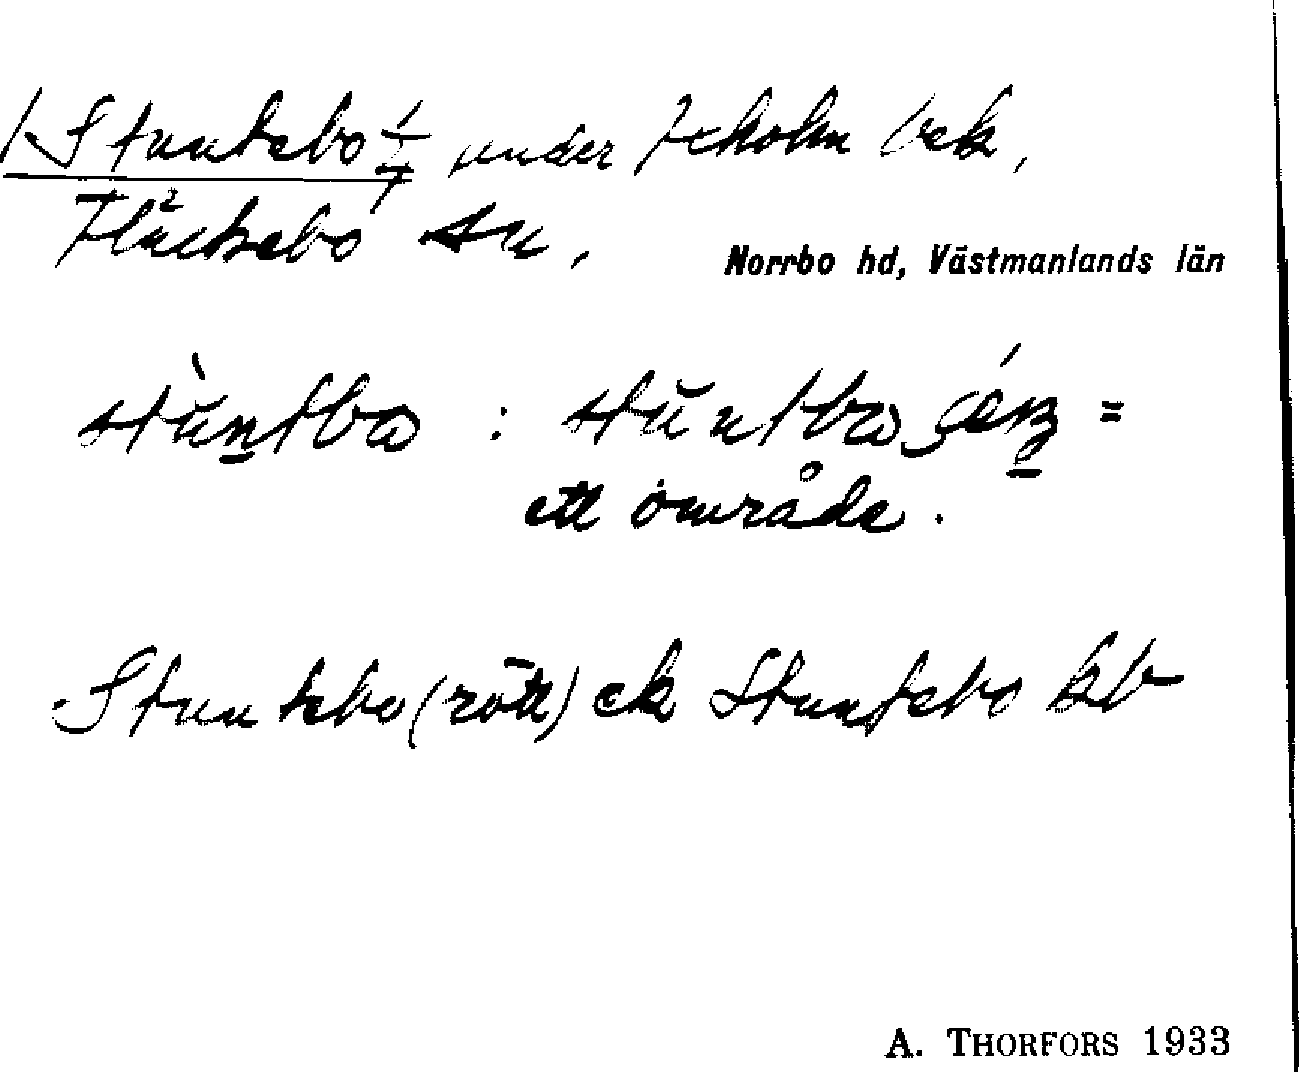 Stuntebo under bek,
Fläckebo sn,
Norrbo hd, Västmanlands län
stùntbo : stuntbo =
ett område.
Stuntebo (rött) ek Stuntebo kb
A. THORFORS 1933